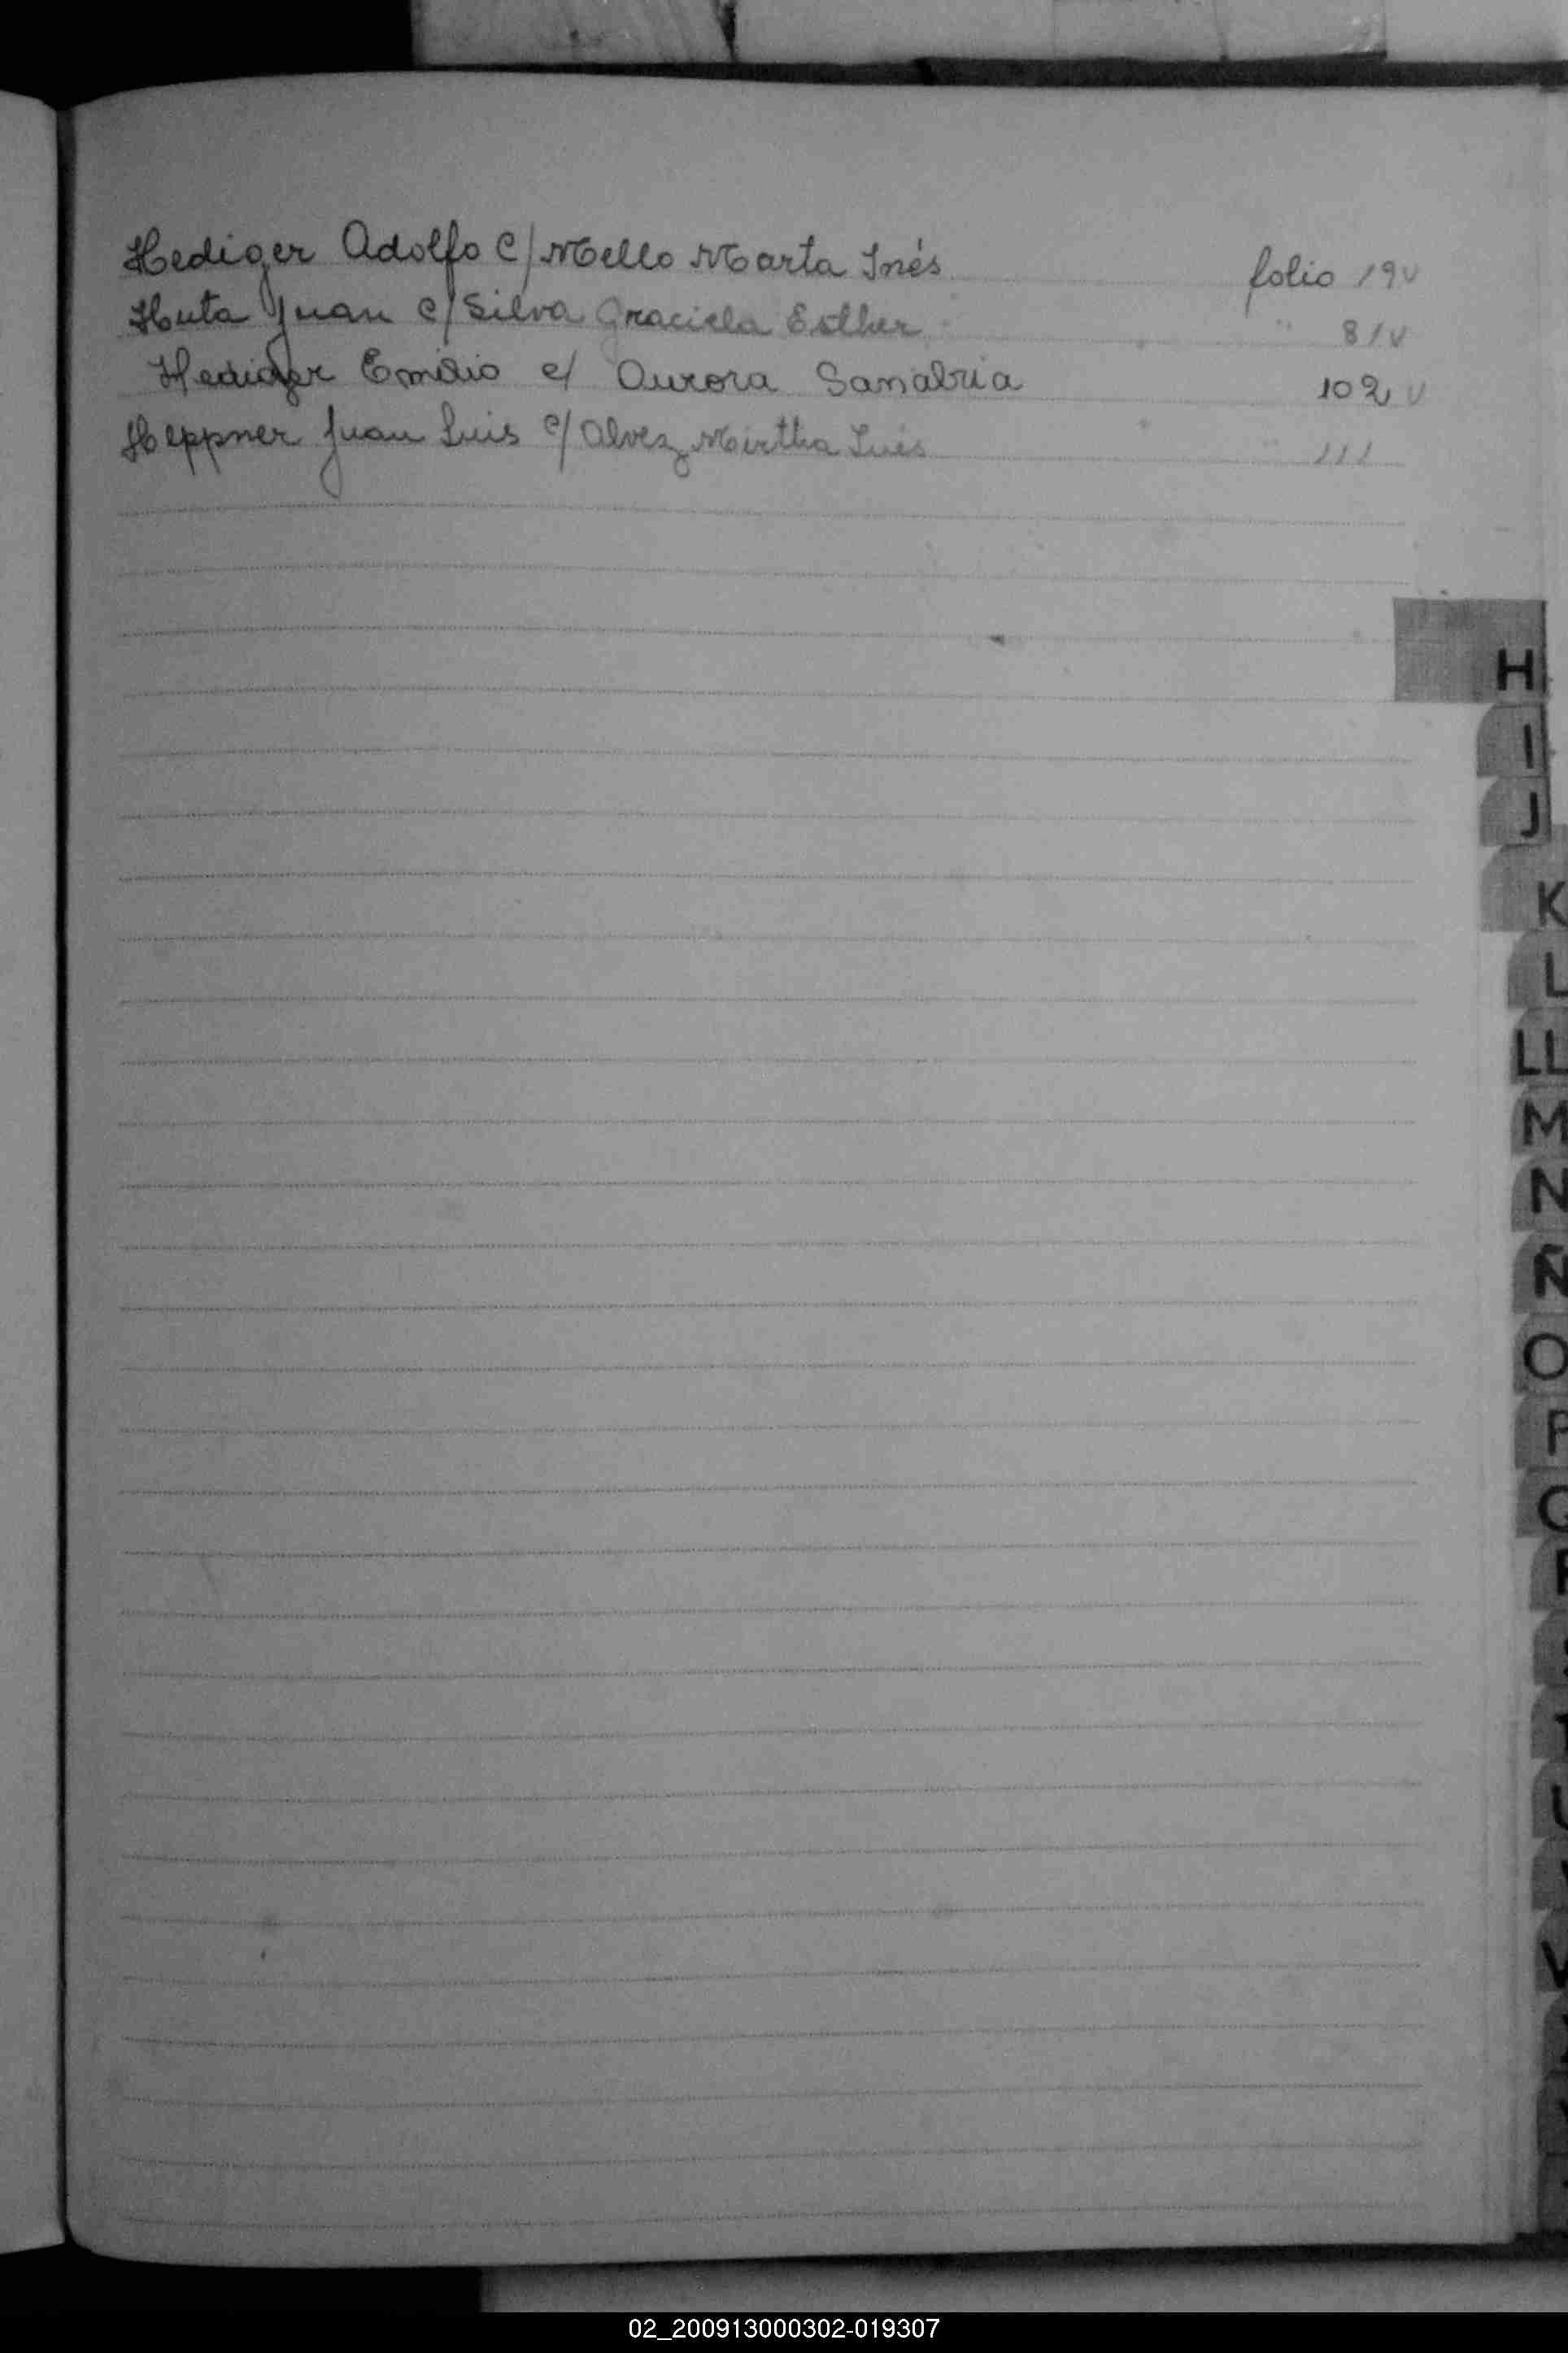 Hediger Adolfo C/ Mello Marta Inés folio 19v
Huta Juan c/ Silva Graciela Esther " 81v
Hediger Emilio c/ Aurora Sanabria 102 v
Heppner Juan Luis c/ Alvez Mirtha Inés " 111
H
I
J
K
L
LL
M
N
Ñ
O
P
Q
R
S
T
U
V
02_200913000302-019307